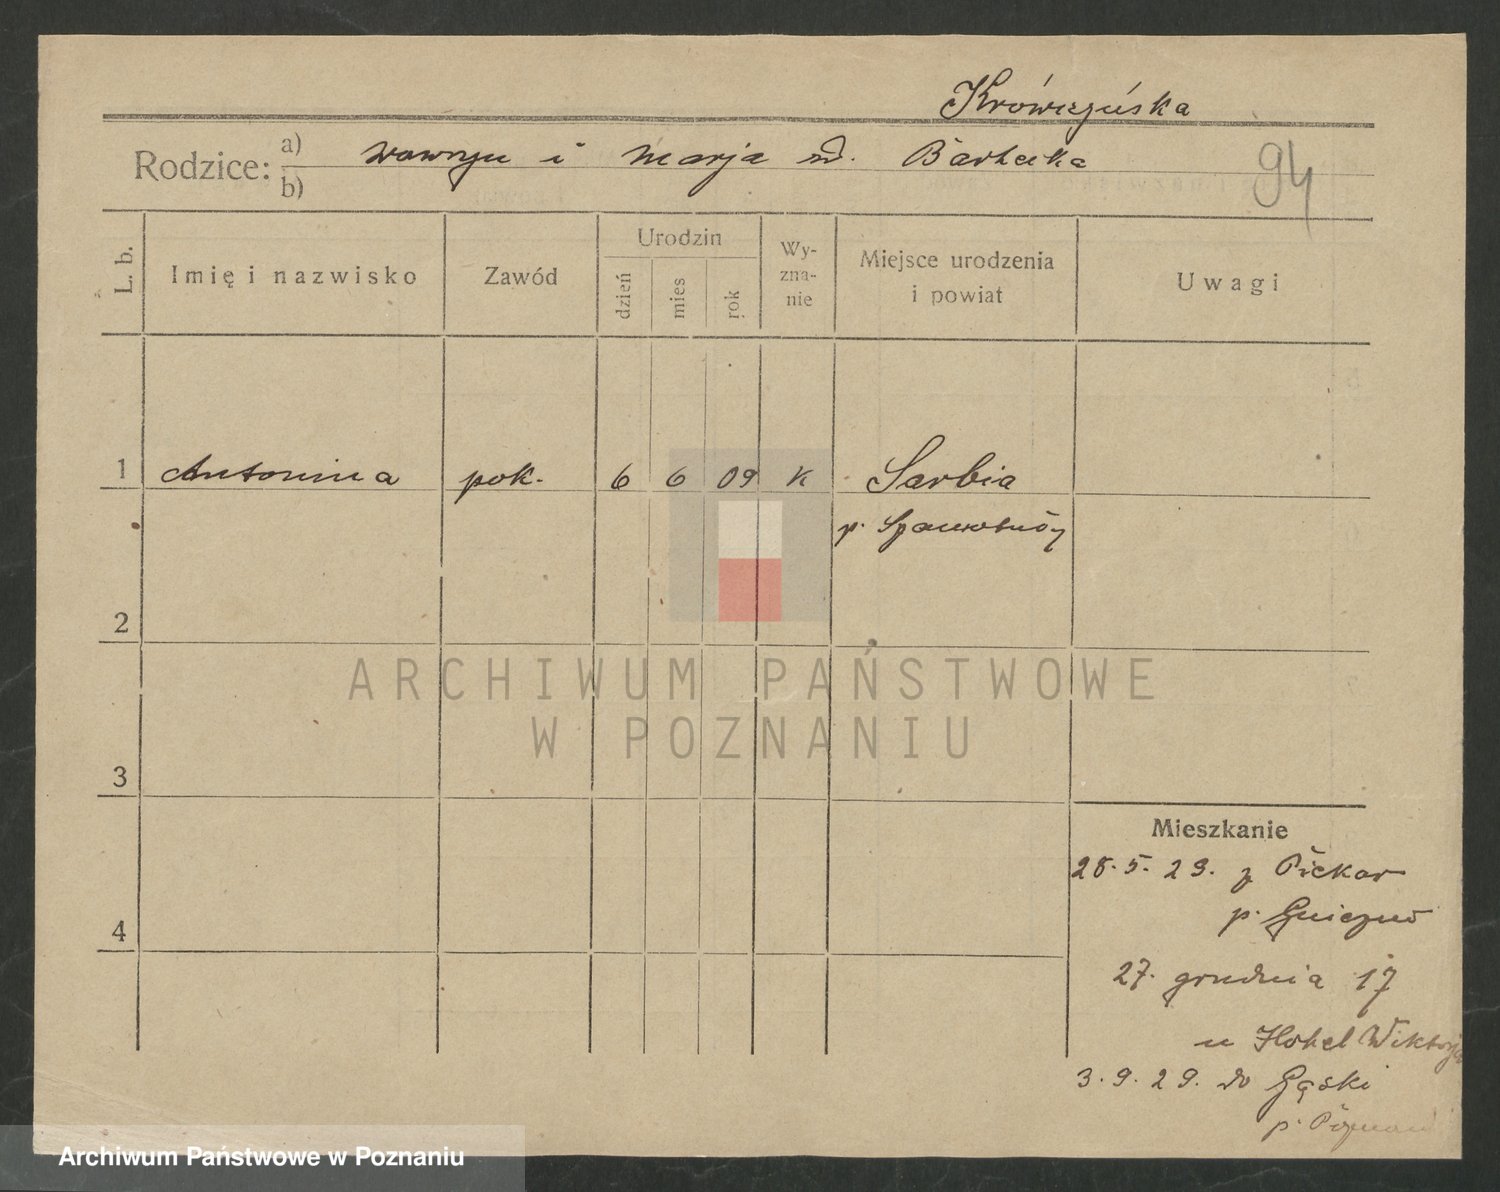 Krówczyńska
Rodzice: a) b) Wawrzyn i Marja rd. Bartecka
94
L. b.
Imię i nazwisko
Zawód
Urodzin
dzień
mies
rok
Wy-
zna-
nie
Miejsce urodzenia
i powiat
Uwagi
1 Antonina pok. 6 6 09 K Sarbia
p. Szamotuły
2
3
4
Mieszkanie
28.5.29. z Piekar
p. Gniezno
27. grudnia 17
u Hotel Wiktorja
3.9.29. do Gąski
p. Poznań
ARCHIWUM PAŃSTWOWE
W POZNANIU
Archiwum Państwowe w Poznaniu